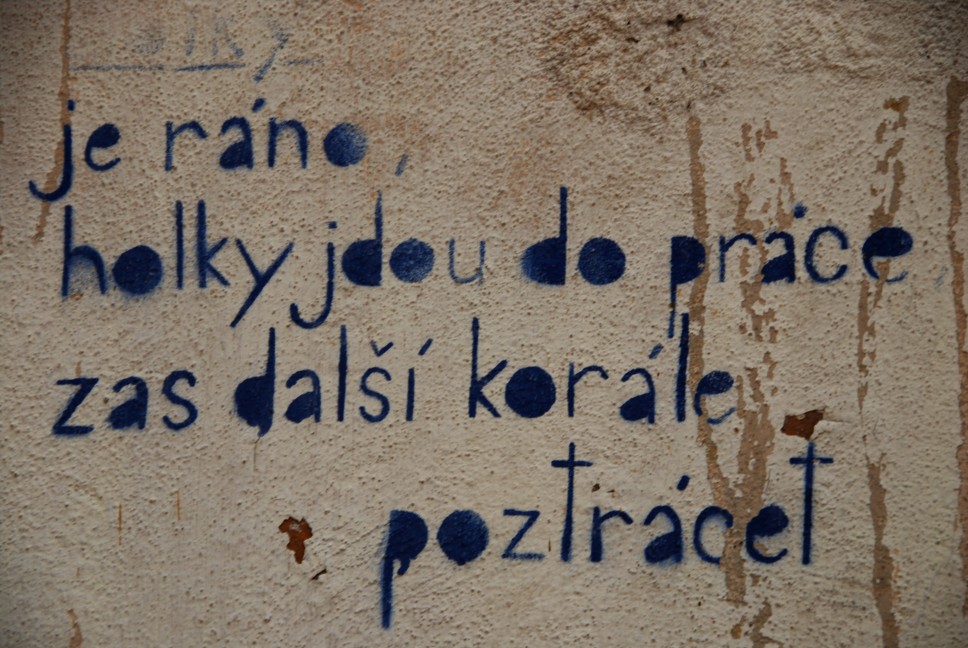 je ráno,
holky jdou do práce
zas další korále
poztrácet